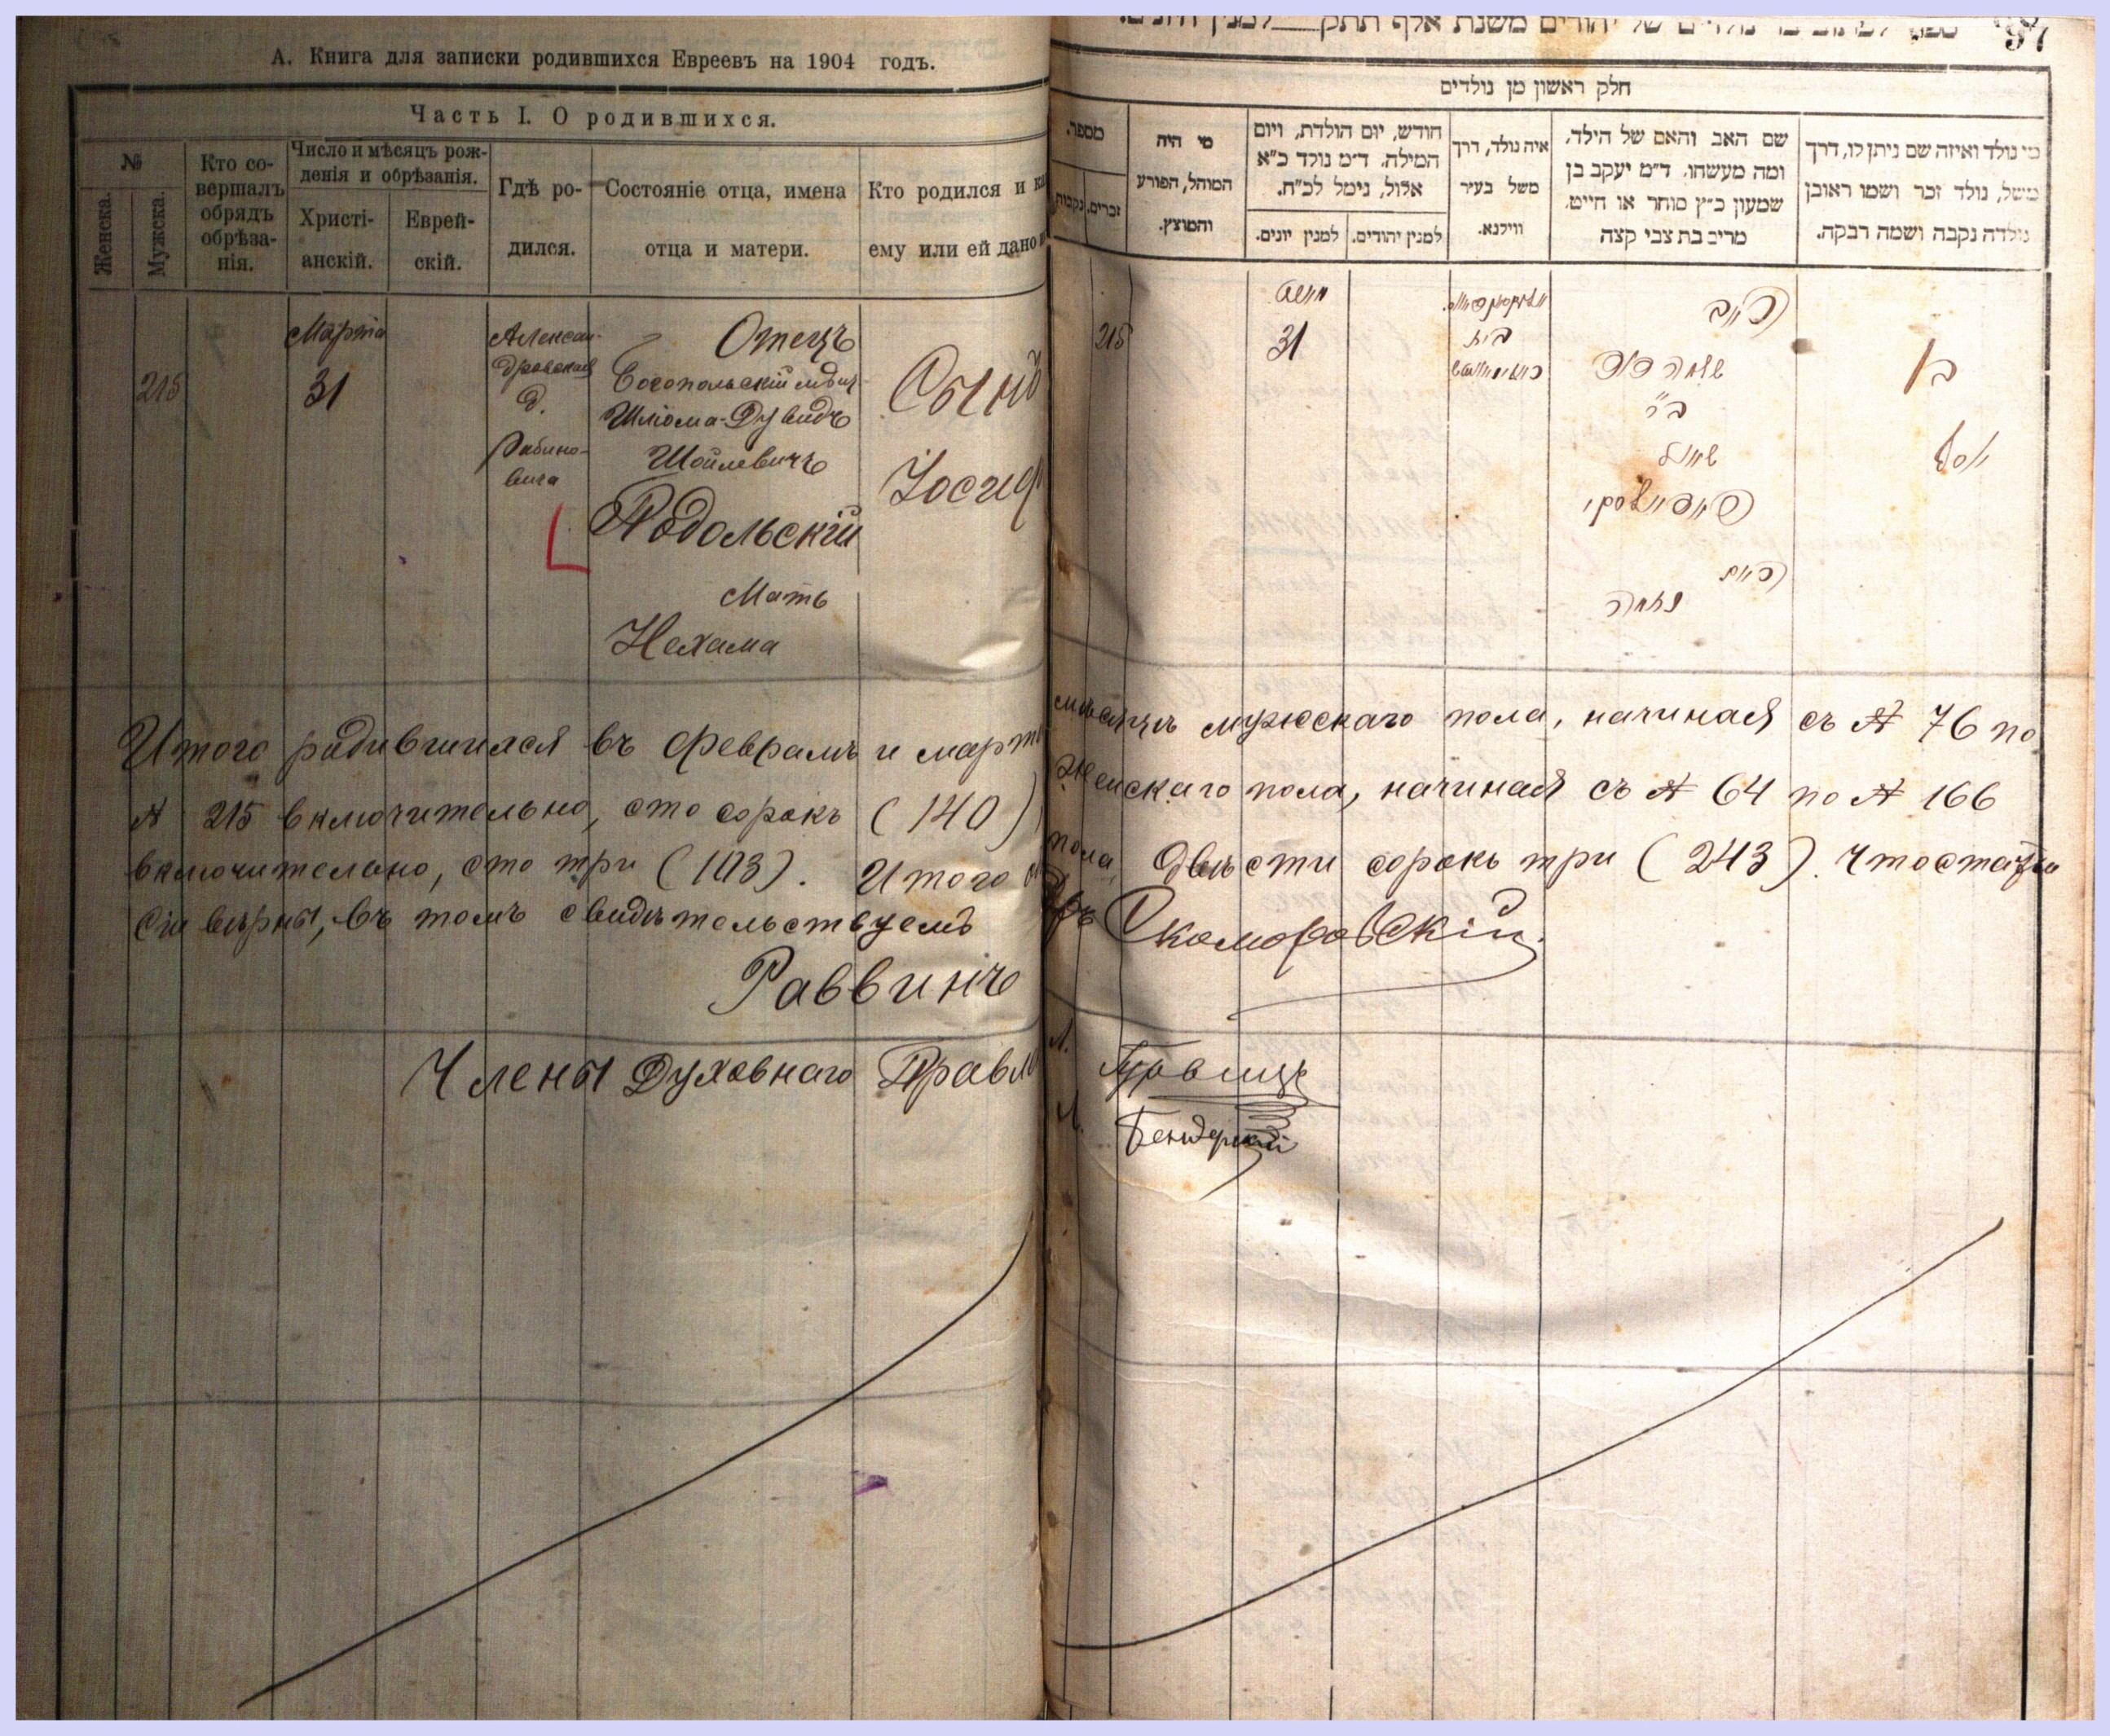 А. Книга для записки родившихся Евреевъ на 1904 годъ.
Часть I. О родившихся.
№
Женска.
Мужска.
Кто со-
вершалъ
обрядъ
обрѣза-
нія.
Число и мѣсяцъ рож-
денія и обрѣзанія.
Христі-
анскій.
Еврей-
скій.
Гдѣ ро-
дился.
Состояніе отца, имена
отца и матери.
Кто родился и
ему или ей дано
215
Марта
31
Алексан-
дровская
д.
Рабино-
вича
Отецъ
Богопольскій мѣщ.
Шліома-Дувидъ
Шойлевичъ
Подольскій
Мать
Нехама
Сынъ
Іосиф
חלק ראשון מן נולדים
מספר.
זכרים.
נקבות
מי היה
המוהל, הפורע
והמוצץ.
חודש, יום הולדת, ויום
המילה. ד״מ נולד כ״א
אלול, נימל לכ״ח.
למנין יונים.
למנין יהודים.
איה נולד, דרך
משל בעיר
ווילנא.
שם האב והאם של הילד,
ומה מעשהו. ד״מ יעקב בן
שמעון כ״ץ סוחר או חייט,
מרים בת צבי קצה
מי נולד ואיזה שם ניתן לו, דרך
משל, נולד זכר ושמו ראובן
נולדה נקבה ושמה רבקה.
215
31
בית
האב
שלמה דוד
ב״ר
שאול
פאדאלסקי
האם
נחמה
בן
יוסף
Итого родившихся въ Февралѣ и мартѣ мѣсяцѣ мужскаго пола, начиная съ № 76 по
№ 215 включительно, сто сорокъ (140) Женскаго пола, начиная съ № 64 по № 166
включительно, сто три (103). Итого пола двѣсти сорокъ три (243). Что статьи
сіи вѣрны, въ томъ свидѣтельствуемъ
Раввинъ Скоморовскій
Члены Духовнаго Правл
Гурвицъ
Бендерскій